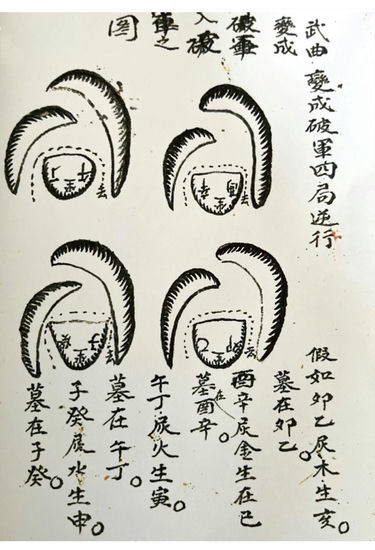 武曲變成破軍四局逆行
變成
破軍
入破
軍之
图
假如卯乙属木生亥。
墓在卯乙。
酉辛属金生在巳
墓在酉辛。
午丁属火生寅
墓在午丁。
子癸属水生申。
墓在子癸。